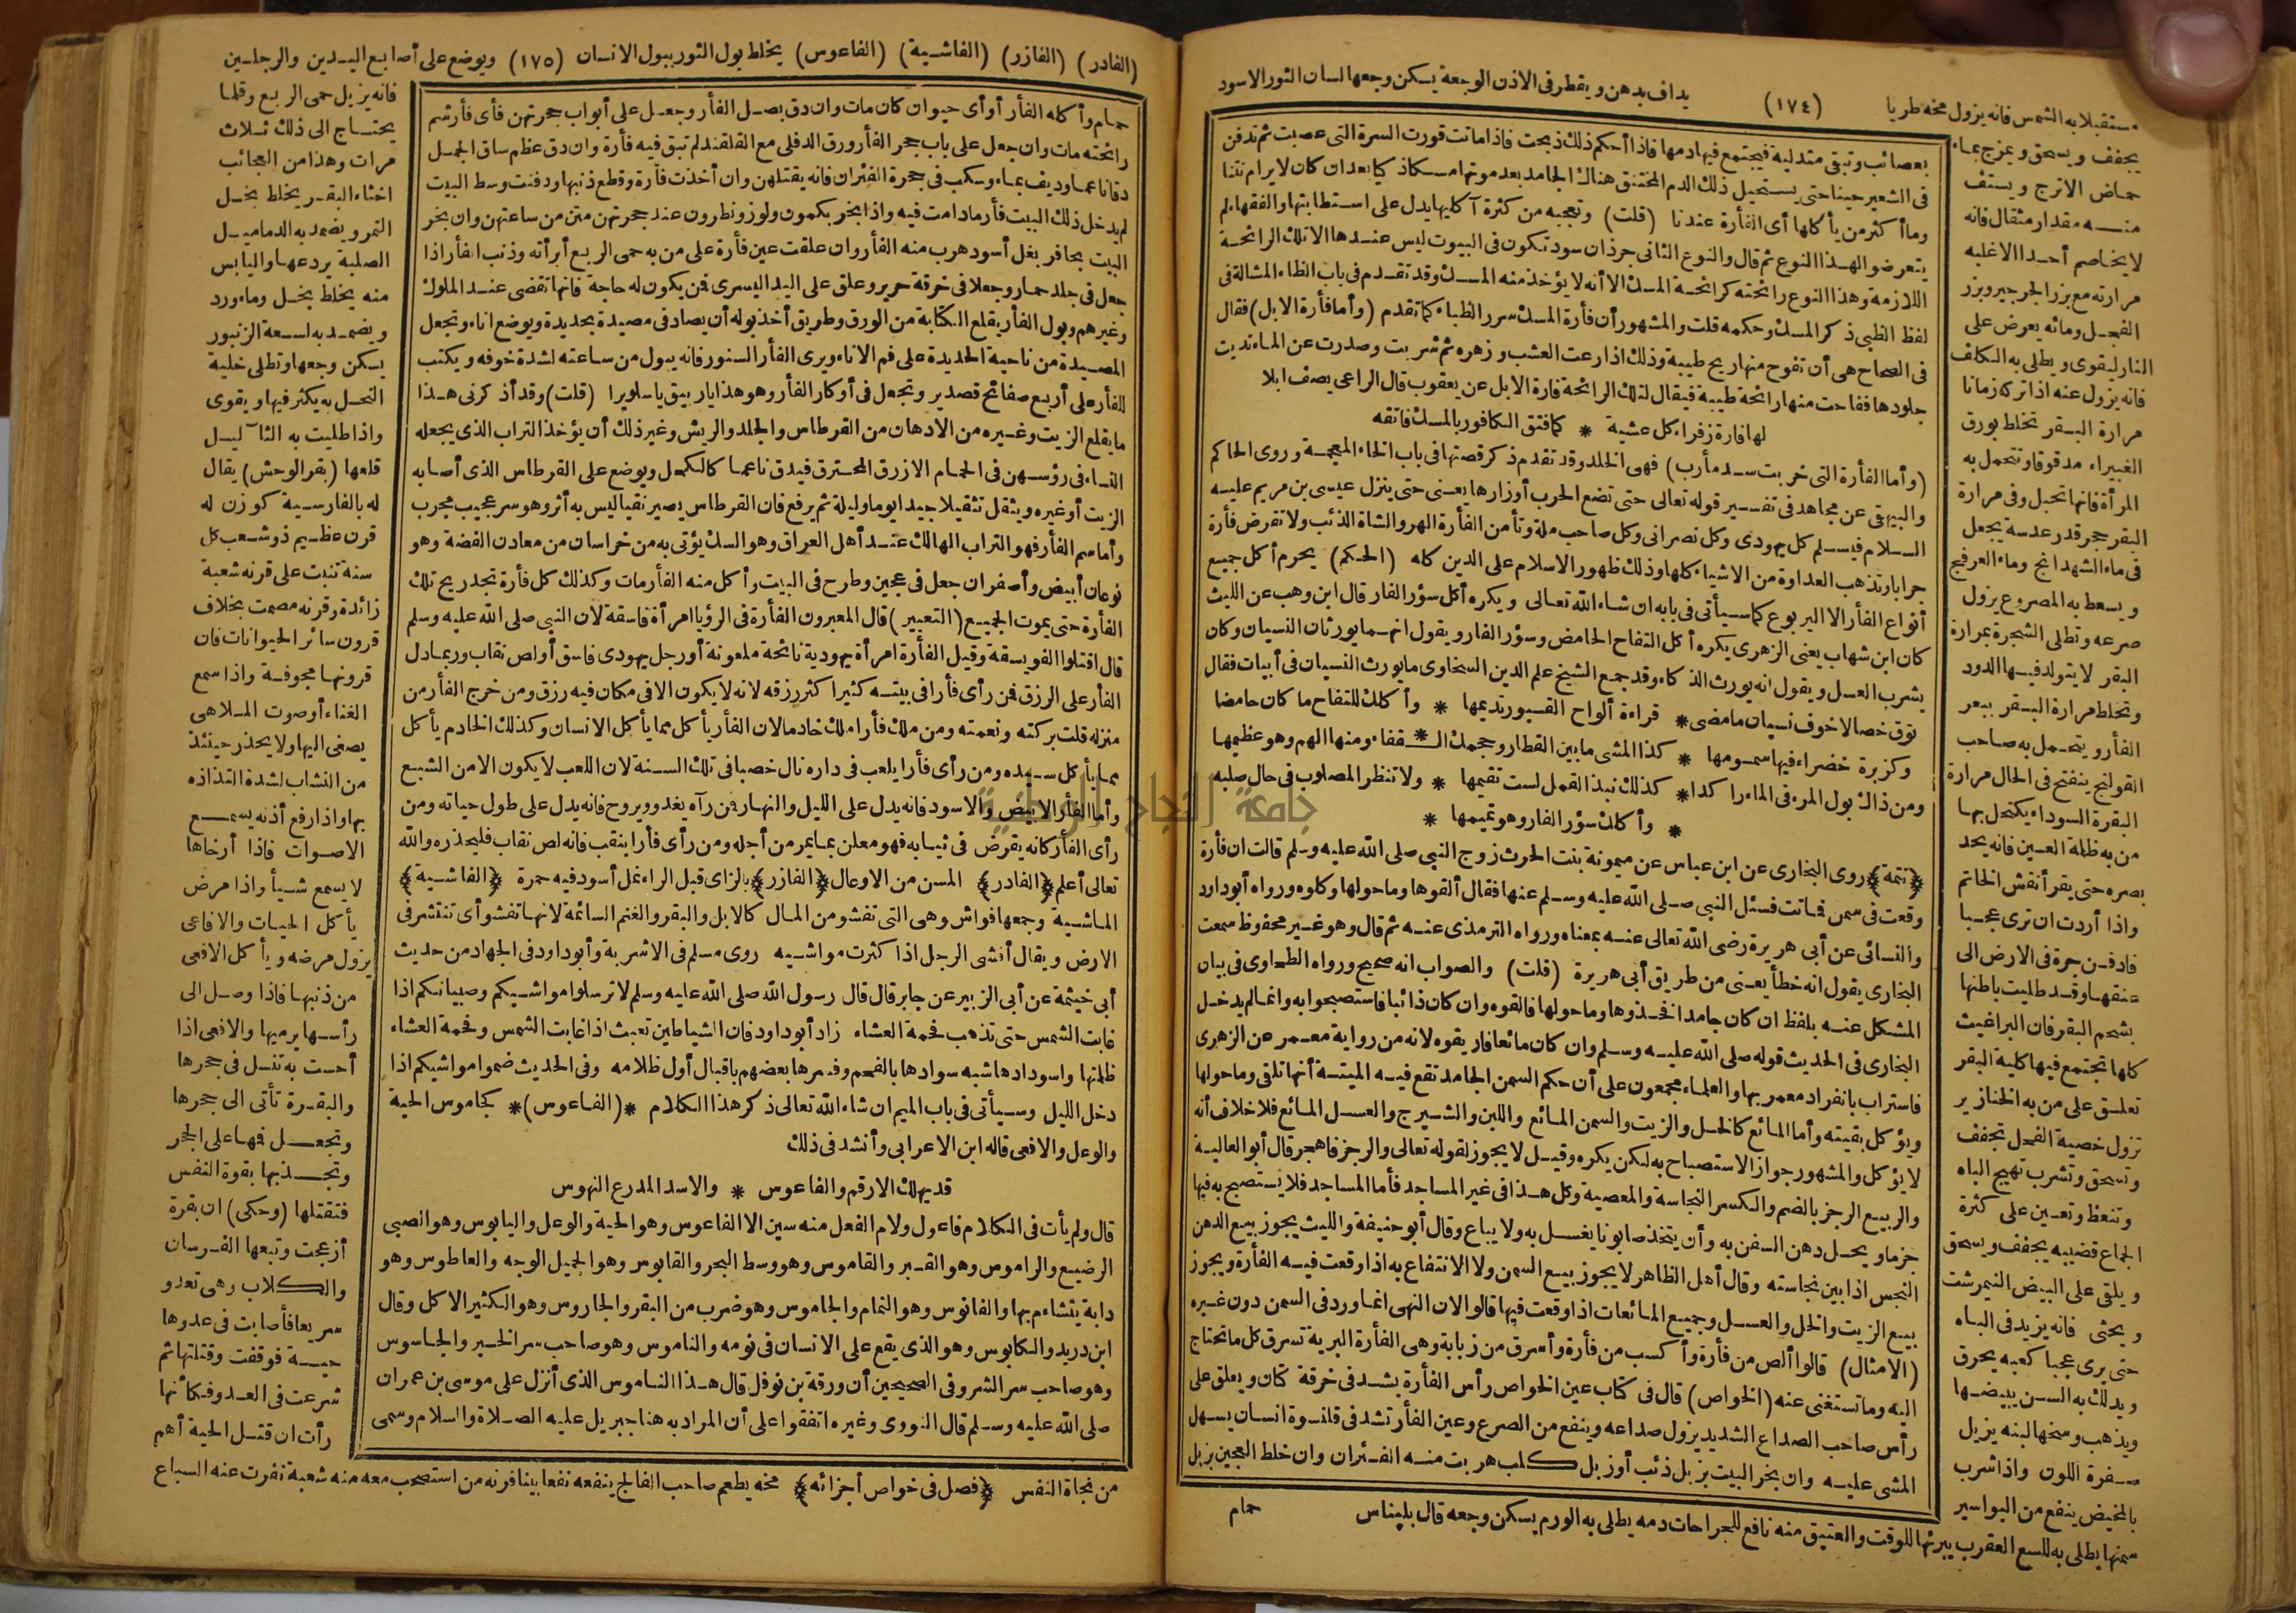 مستقبلا به الشمس فانه يزول مخه طريا (١٧٤) يداف بدهن ويقطر فى الاذن الوجعة يسكن وجعها لسان الثور الاسود
بعصائب وتبقى متدلية فيجتمع فيها دمها فاذا أحكم ذلك ذبحت فاذا ماتت قورت السرة التى عصبت ثم تدفن
فى الشعير حينا حتى يستحيل ذلك الدم المختنق هناك الجامد بعد موتها مسكا ذكيا بعد ان كان لا يرام نتنا
وما أكثر من يأكلها أى الفأرة عندنا (قلت) وتعجبه من كثرة آكليها يدل على استطابتها والفقهاء لم
يتعرضوا لهذا النوع ثم قال والنوع الثانى جرذان سود تكون فى البيوت ليس عندها الا تلك الرائحة
اللازمة وهذا النوع رائحته كرائحة المسك الا أنه لا يؤخذ منه المسك وقد تقدم فى باب الظاء المشالة فى
لفظ الظبى ذكر المسك وحكمه قلت والمشهور أن فأرة المسك سرر الظباء كما تقدم (وأما فأرة الابل) فقال
فى الصحاح هى أن تفوح منها ريح طيبة وذلك اذا رعت العشب وزهره ثم شربت وصدرت عن الماء نديت
جلودها ففاحت منها رائحة طيبة فيقال لتلك الرائحة فارة الابل عن يعقوب قال الراعى يصف ابلا
لها فارة زفراء كل عشية * كما فتق الكافور بالمسك فاتقه
(وأما الفأرة التى خربت سد مأرب) فهى الخلد وقد تقدم ذكر قصتها فى باب الخاء المعجمة وروى الحاكم
والبيهقى عن مجاهد فى تفسير قوله تعالى حتى تضع الحرب أوزارها يعنى حتى ينزل عيسى بن مريم عليه
السلام فيسلم كل يهودى وكل نصرانى وكل صاحب ملة وتأمن الفأرة الهر والشاة الذئب ولا تقرض فأرة
جرابا وتذهب العداوة من الاشياء كلها وذلك ظهور الاسلام على الدين كله (الحكم) يحرم أكل جميع
أنواع الفأر الا اليربوع كما سيأتى فى بابه ان شاء الله تعالى ويكره أكل سؤر الفار قال ابن وهب عن الليث
كان ابن شهاب يعنى الزهرى يكره أكل التفاح الحامض وسؤر الفار ويقول انهما يورثان النسيان وكان
يشرب العسل ويقول انه يورث الذكاء وقد جمع الشيخ علم الدين السخاوى ما يورث النسيان فى أبيات فقال
توق خصالا خوف نسيان ما مضى * قراءة ألواح القبور تديمها * وأكلك للتفاح ما كان حامضا
وكزبرة خضراء فيها سمومها * كذا المشى ما بين القطار وحجمك القفاء ومنها الهم وهو عظيمها
ومن ذاك بول المرء فى الماء راكدا * كذلك نبذ القمل لست تقيمها * ولا تنظر المصلوب فى حال صلبه
* وأكلك سؤر الفار وهو تميمها *
(تتمة) روى البخارى عن ابن عباس عن ميمونة بنت الحرث زوج النبى صلى الله عليه وسلم قالت ان فأرة
وقعت فى سمن فماتت فسئل النبى صلى الله عليه وسلم عنها فقال ألقوها وما حولها وكلوه ورواه أبو داود
والنسائى عن أبى هريرة رضى الله تعالى عنه بمعناه ورواه الترمذى عنه ثم قال وهو غير محفوظ سمعت
البخارى يقول انه خطأ يعنى من طريق أبى هريرة (قلت) والصواب انه صحيح ورواه الطحاوى فى بيان
المشكل عنه بلفظ ان كان جامدا فخذوها وما حولها فالقوه وان كان ذائبا فاستصبحوا به وانما لم يدخل
البخارى فى الحديث قوله صلى الله عليه وسلم وان كان مائعا فلا تقربوه لانه من رواية معمر عن الزهرى
فاستراب بانفراد معمر بها والعلماء مجمعون على أن حكم السمن الجامد تقع فيه الميتة أنها تلقى وما حولها
ويؤكل بقيته وأما المائع كالخل والزيت والسمن المائع واللبن والشيرج والعسل المائع فلا خلاف أنه
لا يؤكل والمشهور جواز الاستصباح به لكن يكره وقيل لا يجوز لقوله تعالى والرجز فاهجر قال أبو العالية
والربيع الرجز بالضم والكسر النجاسة والمعصية وكل هذا فى غير المساجد فأما المساجد فلا يستصبح به فيها
جزما ويحل دهن السفن به وأن يتخذ صابونا يغسل به ولا يباع وقال أبو حنيفة والليث يجوز بيع الدهن
النجس اذا بين نجاسته وقال أهل الظاهر لا يجوز بيع السمن ولا الانتفاع به اذا وقعت فيه الفأرة ويجوز
بيع الزيت والخل والعسل وجميع المائعات اذا وقعت فيها قالوا لان النهى انما ورد فى السمن دون غيره
(الامثال) قالوا ألص من فأرة وأكسب من فأرة وأسرق من زبابة وهى الفأرة البرية تسرق كل ما تحتاج
اليه وما تستغنى عنه (الخواص) قال فى كتاب عين الخواص رأس الفأرة يشد فى خرقة كتان ويعلق على
رأس صاحب الصداع الشديد يزول صداعه وينفع من الصرع وعين الفأر تشد فى قلنسوة انسان يسهل
المشى عليه وان بخر البيت بزبل ذئب أو زبل كلب هربت منه الفئران وان خلط العجين بزبل
حمام
يجفف ويسحق ويمزج بماء
حماض الاترج ويستف
منه مقدار مثقال فانه
لا يخاصم أحدا الا غلبه
مرارته مع بزر الجرجير وبزر
الفجل ومائه يعرض على
النار ليقوى ويطلى به الكلف
فانه يزول عنه اذا تركه زمانا
مرارة البقر تخلط بورق
الغبيراء مدقوقا وتتحمل به
المرأة فانها تحبل وفى مرارة
البقر حجر قدر عدسة يجعل
فى ماء الشهدانج وماء العرفج
ويسعط به المصروع يزول
صرعه وتطلى الشجرة بمرارة
البقر لا يتولد فيها الدود
وتخلط مرارة البقر ببعر
الفأر ويتحمل به صاحب
القولنج ينفتح فى الحال مرارة
البقرة السوداء يكتحل بها
من به ظلمة العين فانه يحد
بصره حتى يقرأ نقش الخاتم
واذا أردت ان ترى عجبا
فادفن جرة فى الارض الى
عنقها وقد طليت باطنها
بشحم البقر فان البراغيث
كلها تجتمع فيها كلية البقر
تعلق على من به الخنازير
تزول خصية الفحل تجفف
وتسحق وتشرب تهيج الباه
وتنعظ وتعين على كثرة
الجماع قضيبه يجفف ويسحق
ويلقى على البيض النيمرشت
ويحشى فانه يزيد فى الباه
حتى يرى عجبا كعبه يحرق
ويدلك به السن يبيضها
ويذهب وسخها لبنه يزيل
صفرة اللون واذا شرب
بالمخيض ينفع من البواسير
سمنها يطلى به للسع العقرب يبرئها للوقت والعتيق منه نافع للجراحات دمه يطلى به الورم يسكن وجعه قال بليناس
(الفادر) (الفازر) (الفاشية) (الفاعوس) يخلط بول الثور ببول الانسان (١٧٥) ويوضع على أصابع اليدين والرجلين
حمام وأكله الفأر أو أى حيوان كان مات وان دق بصل الفأر وجعل على أبواب جحرتهن فأى فأر شم
رائحته مات وان جعل على باب جحر الفأر ورق الدفلى مع القلقند لم تبق فيه فأرة وان دق عظم ساق الجمل
دقا ناعما وديف بماء وسكب فى جحرة الفئران فانه يقتلهن وان أخذت فأرة وقطع ذنبها ودفنت وسط البيت
لم يدخل ذلك البيت فأر مادامت فيه واذا بخر بكمون ولوز ونطرون عند جحرتهن متن من ساعتهن وان بخر
البيت بحافر بغل أسود هرب منه الفأر وان علقت عين فأرة على من به حمى الربع أبرأته وذنب الفأر اذا
جعل فى جلد حمار وجعلا فى خرقة حرير وعلق على اليد اليسرى فمن يكون له حاجة فانها تقضى عند الملوك
وغيرهم وبول الفأر يقلع الكتابة من الورق وطريق أخذ بوله أن يصاد فى مصيدة بحديدة ويوضع اناء وتجعل
المصيدة من ناحية الحديدة على فم الاناء ويرى الفأر السنور فانه يبول من ساعته لشدة خوفه ويكتب
للفأر على أربع صفائح قصدير وتجعل فى أوكار الفأر وهو هذا (قلت) وقد أذكرنى هذا
ما يقلع الزيت وغيره من الادهان من القرطاس والجلد والريش وغير ذلك أن يؤخذ التراب الذى يجعله
النساء فى رؤسهن فى الحمام الازرق المحترق فيدق ناعما كالكحل ويوضع على القرطاس الذى أصابه
الزيت أو غيره ويثقل تثقيلا جيدا يوما وليلة ثم يرفع فان القرطاس يصير نقيا ليس به أثر وهو سر عجيب مجرب
وأما سم الفأر فهو التراب الهالك عند أهل العراق وهو السك يؤتى به من خراسان من معادن الفضة وهو
نوعان أبيض وأصفر ان جعل فى عجين وطرح فى البيت وأكل منه الفأر مات وكذلك كل فأرة تجد ريح تلك
الفأرة حتى يموت الجميع (التعبير) قال المعبرون الفأرة فى الرؤيا امرأة فاسقة لان النبى صلى الله عليه وسلم
قال اقتلوا الفويسقة وقيل الفأرة امرأة يهودية نائحة ملعونة أو رجل يهودى فاسق أو لص نقاب وربما دل
الفأر على الرزق فمن رأى فأرا فى بيته كثيرا كثر رزقه لانه لا يكون الا فى مكان فيه رزق ومن خرج الفأر من
منزله قلت بركته ونعمته ومن ملك فأرا ملك خادما لان الفأر يأكل مما يأكل الانسان وكذلك الخادم يأكل
مما يأكل سيده ومن رأى فأرا يلعب فى داره نال خصبا فى تلك السنة لان اللعب لا يكون الا من الشبع
وأما الفأر الابيض والاسود فانه يدل على الليل والنهار فمن رآه يغدو ويروح فانه يدل على طول حياته ومن
رأى الفأر كانه يقرض فى ثيابه فهو معلن بما يمر من أجله ومن رأى فأرا ينقب فانه لص نقاب فليحذره والله
تعالى أعلم (الفادر) المسن من الاوعال (الفازر) بالزاى قبل الراء نمل أسود فيه حمرة (الفاشية)
الماشية وجمعها فواش وهى التى تفشو من المال كالابل والبقر والغنم السائمة لانها تفشو أى تنتشر فى
الارض ويقال أفشى الرجل اذا كثرت مواشيه روى مسلم فى الاشربة وأبو داود فى الجهاد من حديث
أبى خيثمة عن أبى الزبير عن جابر قال قال رسول الله صلى الله عليه وسلم لا ترسلوا مواشيكم وصبيانكم اذا
غابت الشمس حتى تذهب فحمة العشاء زاد أبو داود فان الشياطين تعبث اذا غابت الشمس وفحمة العشاء
ظلمتها واسودادها شبه سوادها بالفحم وفسرها بعضهم باقبال أول ظلامه وفى الحديث ضموا مواشيكم اذا
دخل الليل وسيأتى فى باب الميم ان شاء الله تعالى ذكر هذا الكلام *(الفاعوس)* كجاموس الحية
والوعل والافعى قاله ابن الاعرابى وأنشد فى ذلك
قد يهلك الارقم والفاعوس * والاسد المدرع النهوس
قال ولم يأت فى الكلام فاعول ولام الفعل منه سين الا الفاعوس وهو الحية والوعل والبابوس وهو الصبى
الرضيع والراموس وهو القبر والقاموس وهو وسط البحر والقابوس وهو الجميل الوجه والعاطوس وهو
دابة يتشاءم بها والفانوس وهو النمام والجاموس وهو ضرب من البقر والجاروس وهو الكثير الاكل وقال
ابن دريد والكابوس وهو الذى يقع على الانسان فى نومه والناموس وهو صاحب سر الخير والجاسوس
وهو صاحب سر الشر وفى الصحيحين أن ورقة بن نوفل قال هذا الناموس الذى أنزل على موسى بن عمران
صلى الله عليه وسلم قال النووى وغيره اتفقوا على أن المراد به هنا جبريل عليه الصلاة والسلام وسمى
فانه يزيل حمى الربع وقلما
يحتاج الى ذلك ثلاث
مرات وهذا من العجائب
اخثاء البقر يخلط بخل
التمر ويضمد به الدماميل
الصلبة يردعها واليابس
منه يخلط بخل وماء ورد
ويضمد به لسعة الزنبور
يسكن وجعها وتطلى خلية
النحل به يكثر فيها ويقوى
واذا طليت به الثآليل
قلعها (بقر الوحش) يقال
له بالفارسية كوزن له
قرن عظيم ذو شعب كل
سنة تنبت على قرنه شعبة
زائدة وقرنه مصمت بخلاف
قرون سائر الحيوانات فان
قرونها مجوفة واذا سمع
الغناء أو صوت الملاهى
يصغى اليها ولا يحذر حينئذ
من النشاب لشدة التذاذه
بها واذا رفع أذنه يسمع
الاصوات فاذا أرخاها
لا يسمع شيأ واذا مرض
يأكل الحيات والافاعى
يزول مرضه ويأكل الافعى
من ذنبها فاذا وصل الى
رأسها يرميها والافعى اذا
أحست به تنسل فى جحرها
والبقرة تأتى الى جحرها
وتجعل فمها على الجحر
وتجذبها بقوة النفس
فتقتلها (وحكى) ان بقرة
أزعجت وتبعها الفرسان
والكلاب وهى تعدو
سريعا فأصابت فى عدوها
حية فوقفت وقتلتها ثم
شرعت فى العدو فكأنها
رأت ان قتل الحية أهم
من نجاة النفس (فصل فى خواص أجزائه) مخه يطعم صاحب الفالج ينفعه نفعا بينا قرنه من استصحب معه منه شعبة نفرت عنه السباع
جامعة النجاح الوطنية